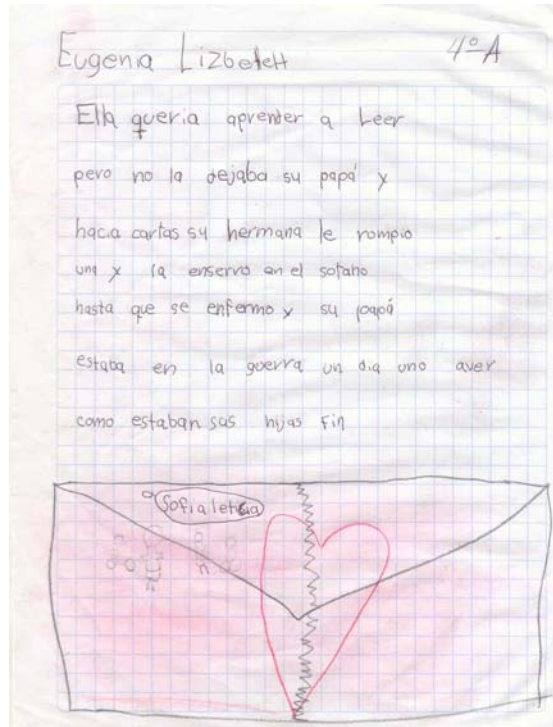 Eugenia Lizbeteht 4º A
Ella queria aprenter a Leer
pero no la dejaba su papá y
hacia cartas su hermana le rompio
una y la enserro an el sotano
hasta que se enfermo y su papá
estaba en la guerra un dia uno aver
como estaban sus hijas Fin
Sofia leticia